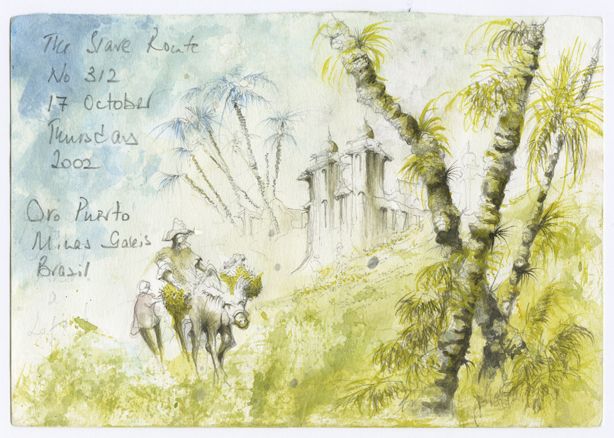 The Slave Route
No 312
17 October
Thursday
2002
Oro Puerto
Minas Galeis
Brasil